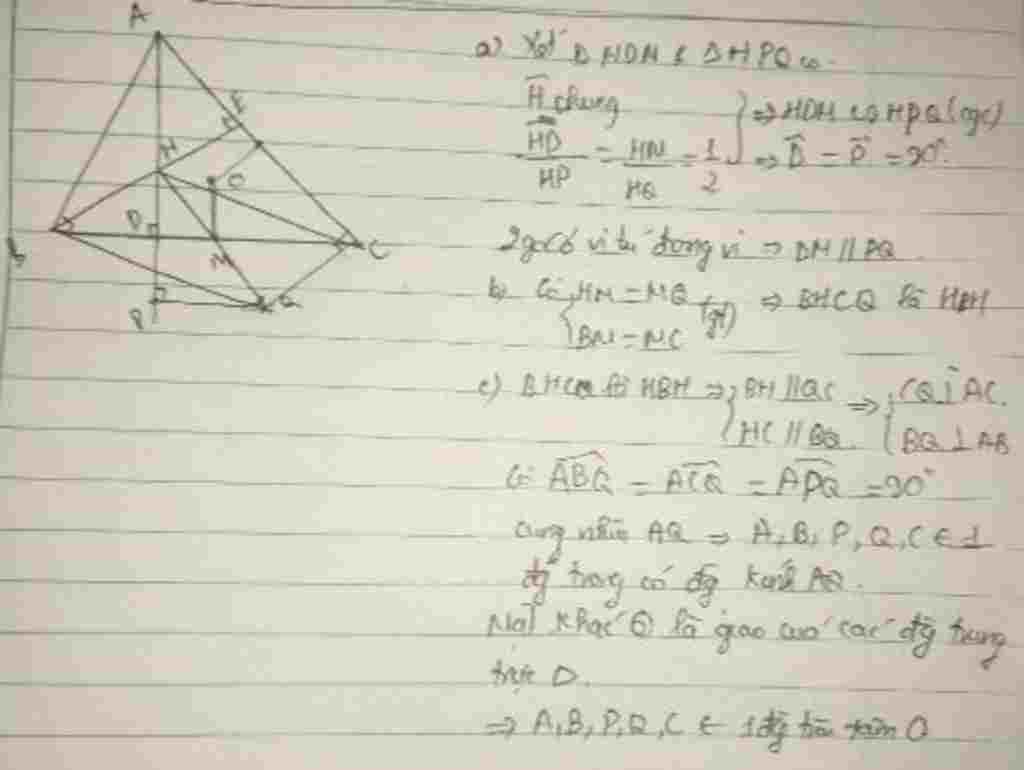 A
E
H
O
D
M
C
B
P
Q
a) Xét Δ HDM & Δ HPQ có
Ĥ chung
HD/HP = HM/HQ = 1/2
⇒ HDM ∽ HPQ (cgc)
⇒ D̂ = P̂ = 90°
2 góc có vị trí đồng vị ⇒ DM // PQ.
b) Có { HM = MQ (gt) ⇒ BHCQ là HBH
BM = MC
c) BHCQ là HBH ⇒ { BH // QC ⇒ { CQ ⊥ AC.
HC // BQ. BQ ⊥ AB
Có ABQ = ACQ = APQ = 90°
cùng nhìn AQ ⇒ A, B, P, Q, C ∈ 1
đg tròng có đg kính AQ.
Mặt khác O là giao của các đg trung
trực Δ.
⇒ A, B, P, Q, C ∈ 1 đg tròn tâm O